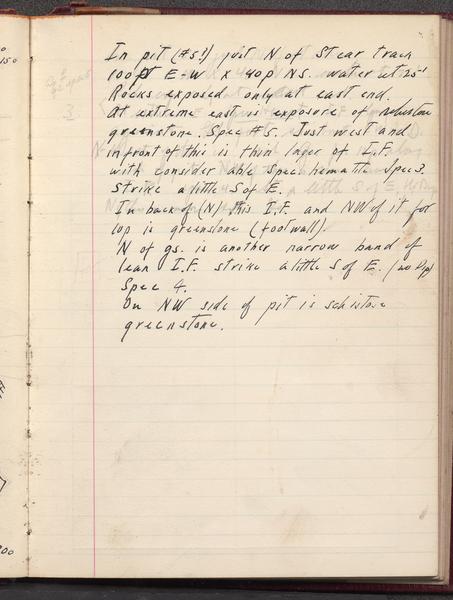 In pit (#5?) just N of St car track
100p E-W X 40p NS. water at 25-1
Rocks exposed only at east end.
At extreme east is exposure of
greenstone. Spec #5. Just west and
in front of this is thin layer of I.F.
with considerable spec. hematite Spec 3.
Strike a little S of E.
In back of (N) this I.F. and NW of it for
10p is greenstone (footwall).
N of gs. is another narrow band of
lean I.F. strike a little S of E. (no Dip)
Spec 4.
On NW side of pit is schistose
greenstone.